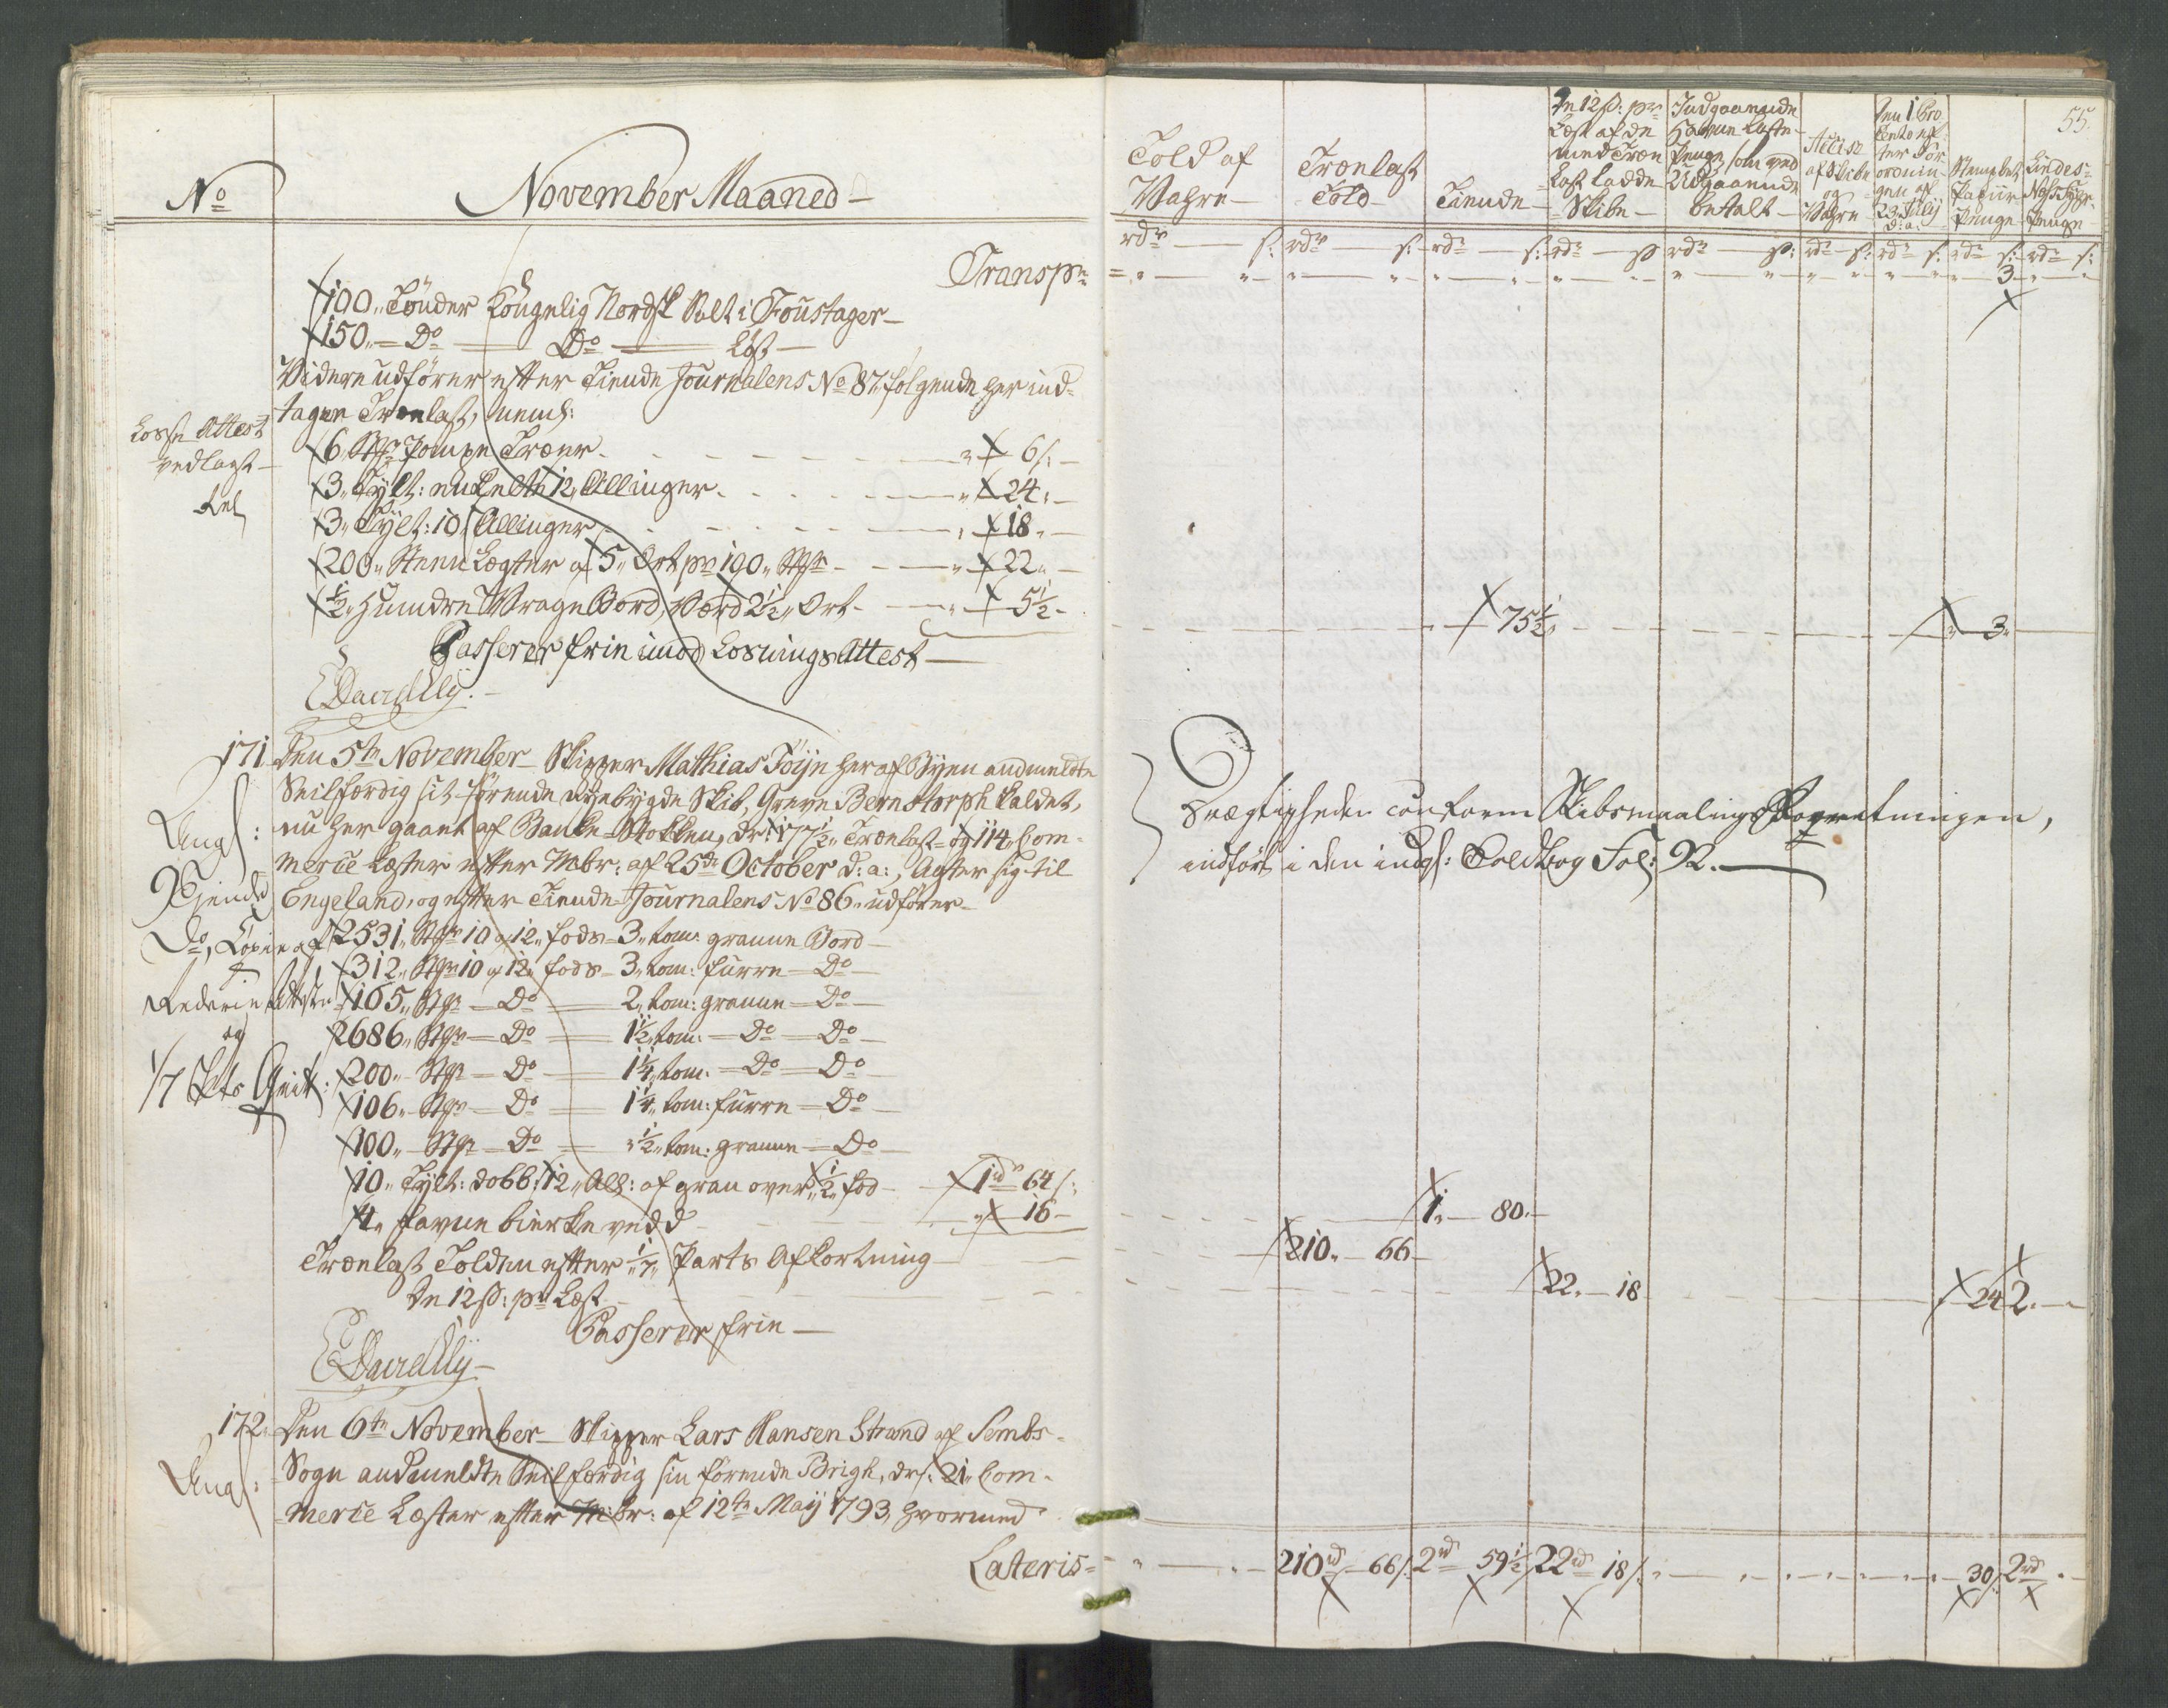 No
November Maaned
Transp:
100 Tønder Kongelig Nordsk Salt i Foustager
150 Do Do løst
Videre udfører efter Tiende Journalens No 87 følgende her ind-
tagen Trælast, neml:
Losse Attest
vedlagt
6 Stkr Pompe Træer 6 s:
3 Tylt: enkelte 12 Allinger 24
3 Tylt: 10 Allinger 18
200 Steen Lægter af 5 Ort pr 100 Stkr 22
½ Hundre Vrage Bord, Værd 2½ Ort 5½
Passerer frie imod Losnings Attest
171. Den 5te November Skipper Mathias Föijn her af Byen andmeldte
Seilfærdig sit førende nyebygde Skib, Greve Bernstorph kaldet,
nu her gaaet af Banke-Stokken, dr: 177½ Trælast- og 114 Com-
merce Læster efter Mbr: af 25de October d: a:, Agter sig til
Engeland, og efter Tiende-Journalens No 86 udfører
Angf:
Tiende
Do, Copie af
Rederie Attester
og
1/7 Pts Qvit:
2531 Stkr 10 a 12 fods 3 tom: granne Bord
312 Stkr 10 a 12 fods 3 tom: furre Do
165 Stkr Do 2 tom: granne Do
2686 Stkr Do 1½ tom: Do Do
200 Stkr Do 1¼ tom: Do Do
106 Stkr Do 1¼ tom: furre Do
100 Stkr Do ½ tom: granne Do
10 Tylt: dobb: 12 All: af gran over ½ fod 1 rd 64 s:
4 favne bierke vedd 16
Trælast Tolden efter 1/7 Parts Afkortning
De 12 s: pr Læst
Passerer frie
172. Den 6te November Skipper Lars Hansen Strand af Sembs-
Sogn andmeldte Seilfærdig sin førende Brigh, dr: 21 Com-
merce Læster efter Mbr: af 12te Maij 1793, hvormed
Angf:
Lateris
55.
Told af Vahre
Trælast Told
Tiende
De 12 s: pr Læst af de med Træ Last ladde Skibe
Indgaaende Havne Laste Penge, som ved Udgaaende betalt
Accise af Skibe og Vahre
Den 1 Pro Cento efter Forordningen af 23 Julij d: a:
Stemplet Papiir Penge
rdr s: rdr s: rdr s: rdr s: rdr s: rdr s: rdr s: rdr s: rdr s:
3
75½ 3
Drægtigheden conform Skibsmaalings Forretningen,
indført i den indg: Toldbog Fol: 92.
1 80
210 66
22 18 24 2
210 rd 66 s: 2 rd 59½ 22 rd 18 s: 30 s: 2 rd